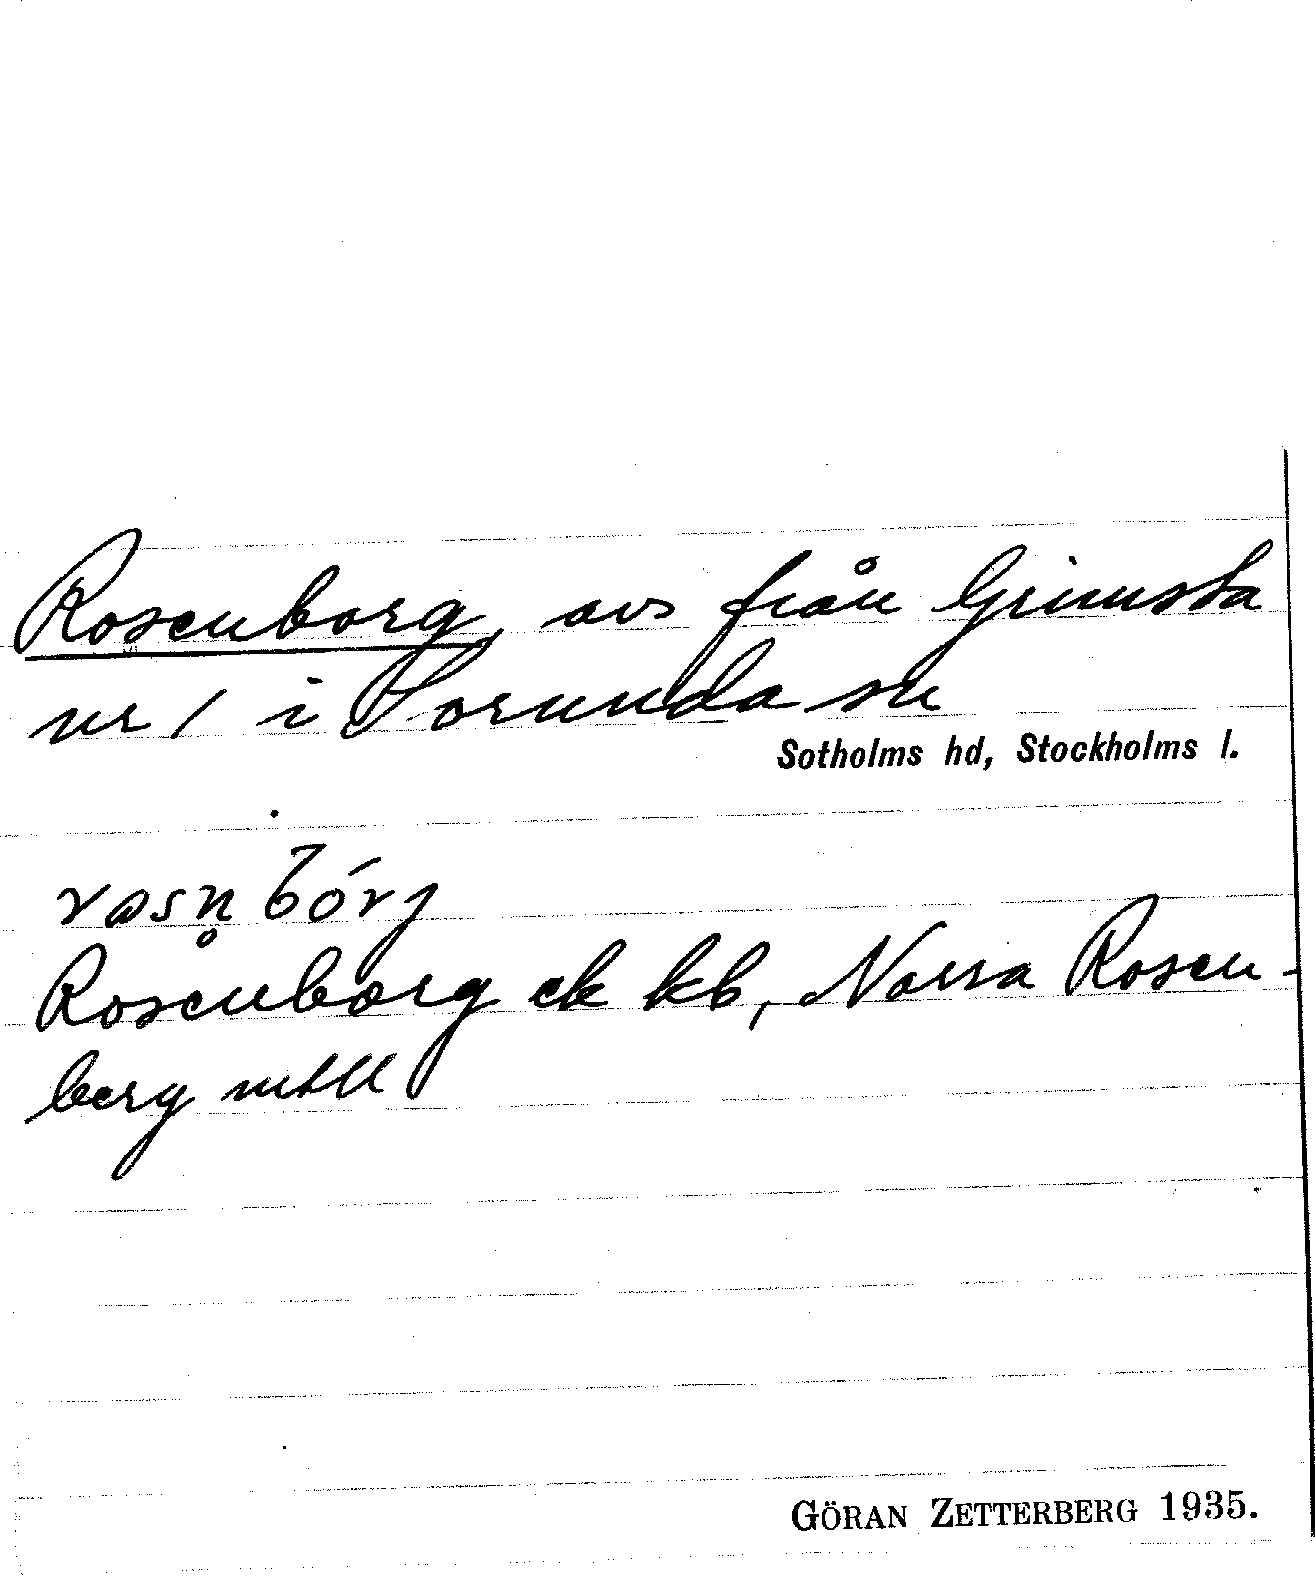 Rosenborg, avs från Grimsta
nr 1 i Sorunda sn
Sotholms hd, Stockholms l.
Rosenborg ek kb, Norra Rosen-
berg mtll
GÖRAN ZETTERBERG 1935.